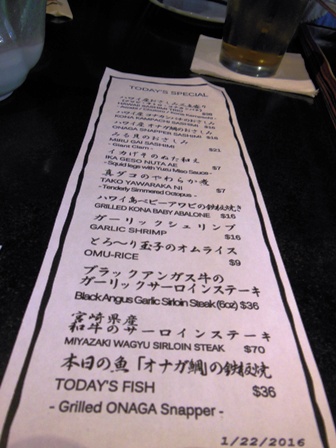 TODAY'S SPECIAL
KONA KAMPACHI SASHIMI
ハワイ産オナガ鯛のおさしみ
ONAGA SNAPPER SASHIMI
みる貝のおさしみ
MIRU GAI SASHIMI $21
- Giant Clam -
イカげそのぬた和え
IKA GESO NUTA AE $7
- Squid legs with Yuzu Miso Sauce -
真ダコのやわらか煮
TAKO YAWARAKA NI $7
- Tenderly Simmered Octopus -
ハワイ島ベビーアワビの鉄板焼き
GRILLED KONA BABY ABALONE $16
ガーリックシュリンプ
GARLIC SHRIMP $16
とろ～り玉子のオムライス
OMU-RICE $9
ブラックアンガス牛の
ガーリックサーロインステーキ
Black Angus Garlic Sirloin Steak (6oz) $36
宮崎県産
和牛のサーロインステーキ
MIYAZAKI WAGYU SIRLOIN STEAK $70
本日の魚「オナガ鯛」の鉄板焼
TODAY'S FISH $36
- Grilled ONAGA Snapper -
1/22/2016